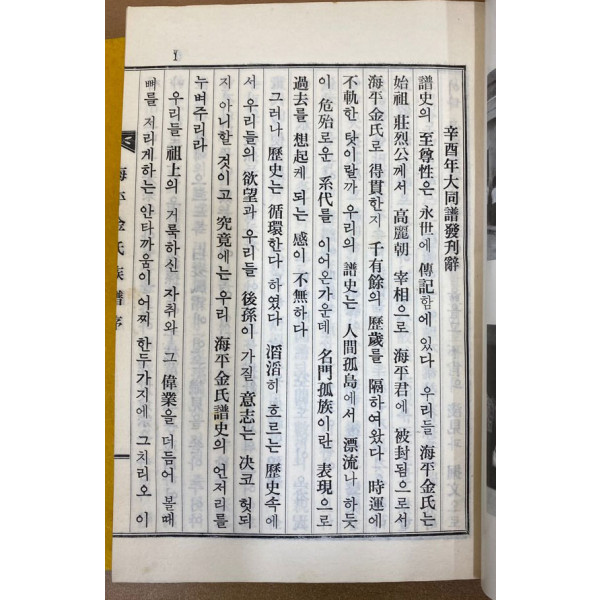 辛酉年大同譜發刊辭
譜史의 至尊性은 永世에 傳記함에 있다 우리들 海平金氏는
始祖 莊烈公께서 高麗朝 宰相으로 海平君에 被封됨으로서
海平金氏로 得貫한지 千有餘의 歷歲를 隔하여왔다 時運에
不軌한 탓이랄까 우리의 譜史는 人間孤島에서 漂流나 하듯
이 危殆로운 系代를 이어온가운데 名門孤族이란 表現으로
過去를 想起케 되는 感이 不無하다
그러나 歷史는 循環한다 하였다 滔滔히 흐르는 歷史속에
서 우리들의 欲望과 우리들 後孫이 가질 意志는 决코 헛되
지 아니할 것이고 究竟에는 우리 海平金氏譜史의 언저리를
누벼주리라
우리들 祖上의 거룩하신 자취와 그 偉業을 더듬어 볼때
뼈를 저리게하는 안타까움이 어찌 한두가지에 그치리오 이
海平金氏族譜序
1